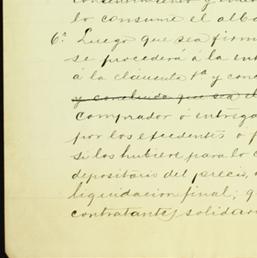 lo consume el alba
6ª Luego que sea firm
se procederá á la en
a la cláusula 1ª y con
y concluida que sea el
comprador ó entrega
por los escedentes ó
si los hubiere para lo
depositario del precio,
liquidacion final; q
contratantes solidar